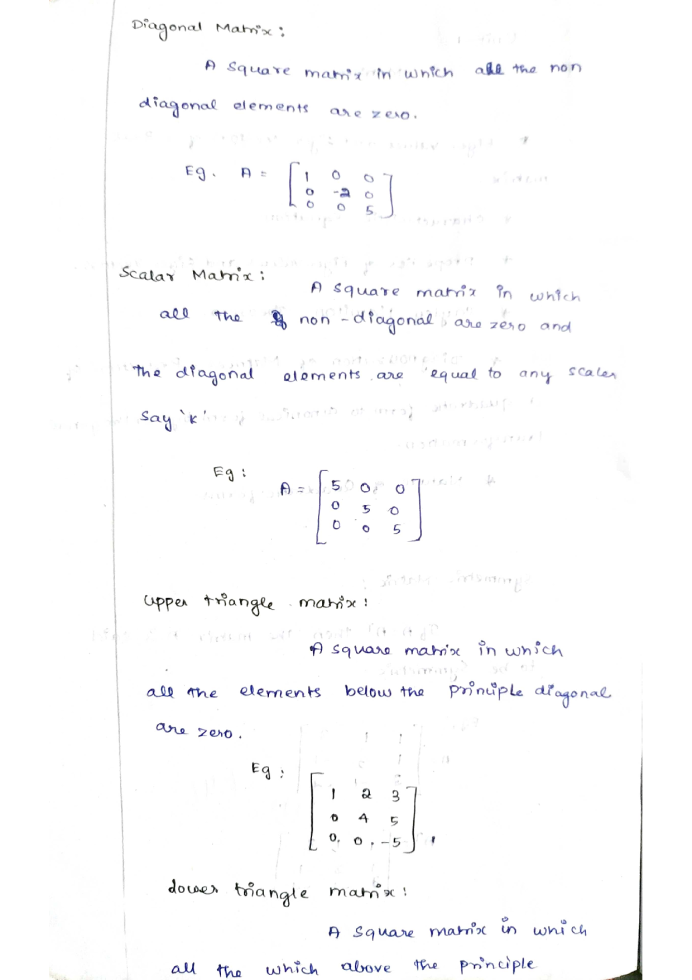 Diagonal Matrix :
A square matrix in which all the non
diagonal elements are zero.
Eg. A = [ 1 0 0
0 -2 0
0 0 5 ]
Scalar Matrix :
A square matrix in which
all the non - diagonal are zero and
the diagonal elements are equal to any scaler
say 'k'
Eg :
A = [ 5 0 0
0 5 0
0 0 5 ]
upper triangle matrix :
A square matrix in which
all the elements below the principle diagonal
are zero.
Eg :
[ 1 2 3
0 4 5
0, 0, -5 ],
Lower triangle matrix :
A square matrix in which
all the which above the principle